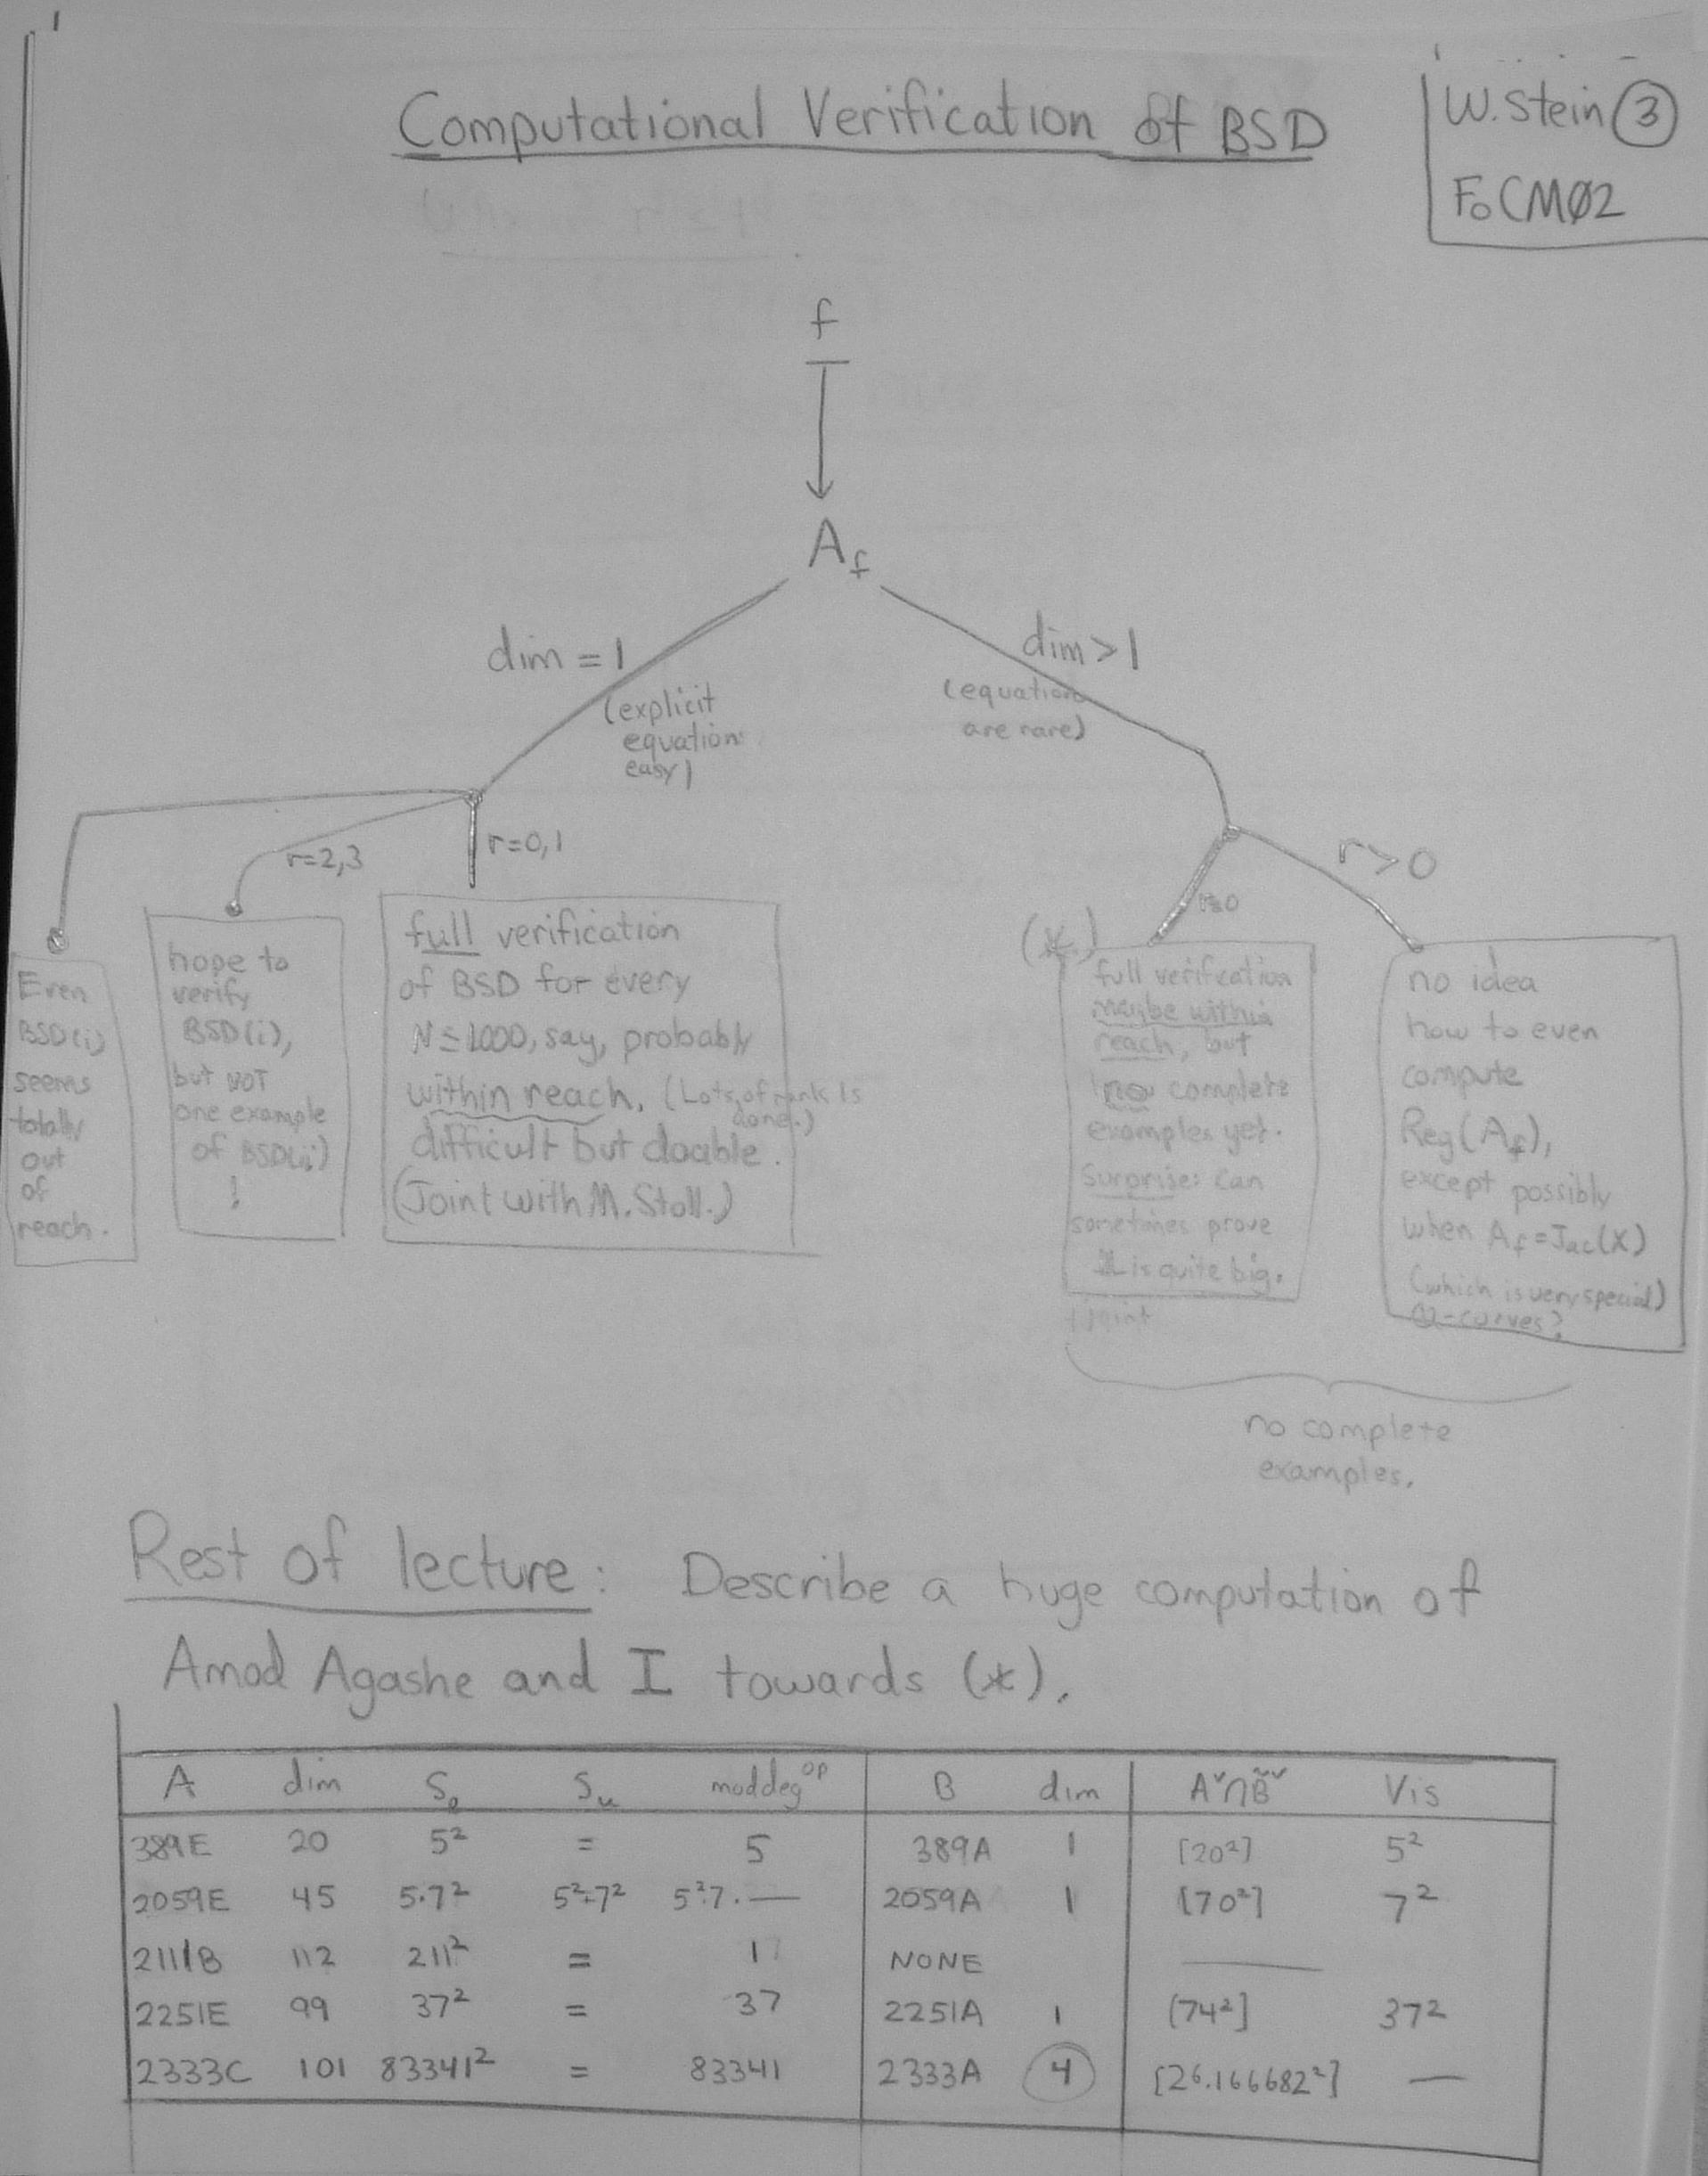 Computational Verification of BSD
W. Stein ③
FoCMØ2
f
A_f
dim = 1
(explicit
equations
easy)
dim > 1
(equations
are rare)
r=2,3
r=0,1
r=0
r>0
Even
BSD(i)
seems
totally
out
of
reach.
hope to
verify
BSD(i),
but NOT
one example
of BSD(ii)
!
full verification
of BSD for every
N≤1000, say, probably
within reach. (Lots of rank 1s
done.)
difficult but doable.
(Joint with M. Stoll.)
(*)
full verification
maybe within
reach, but
no complete
examples yet.
Surprise: can
sometimes prove
Ш is quite big.
(joint
no idea
how to even
compute
Reg(A_f),
except possibly
when A_f = Jac(X)
(which is very special)
Q-curves?
no complete
examples.
Rest of lecture: Describe a huge computation of
Amod Agashe and I towards (*).
A dim S_l S_u moddeg^op B dim A˅∩B˅ Vis
389E 20 5² = 5 389A 1 [20²] 5²
2059E 45 5·7² 5²·7² 5²·7·— 2059A 1 [70²] 7²
2111B 112 211² = 1 NONE —
2251E 99 37² = 37 2251A 1 [74²] 37²
2333C 101 83341² = 83341 2333A 4 [2⁶·166682²] —